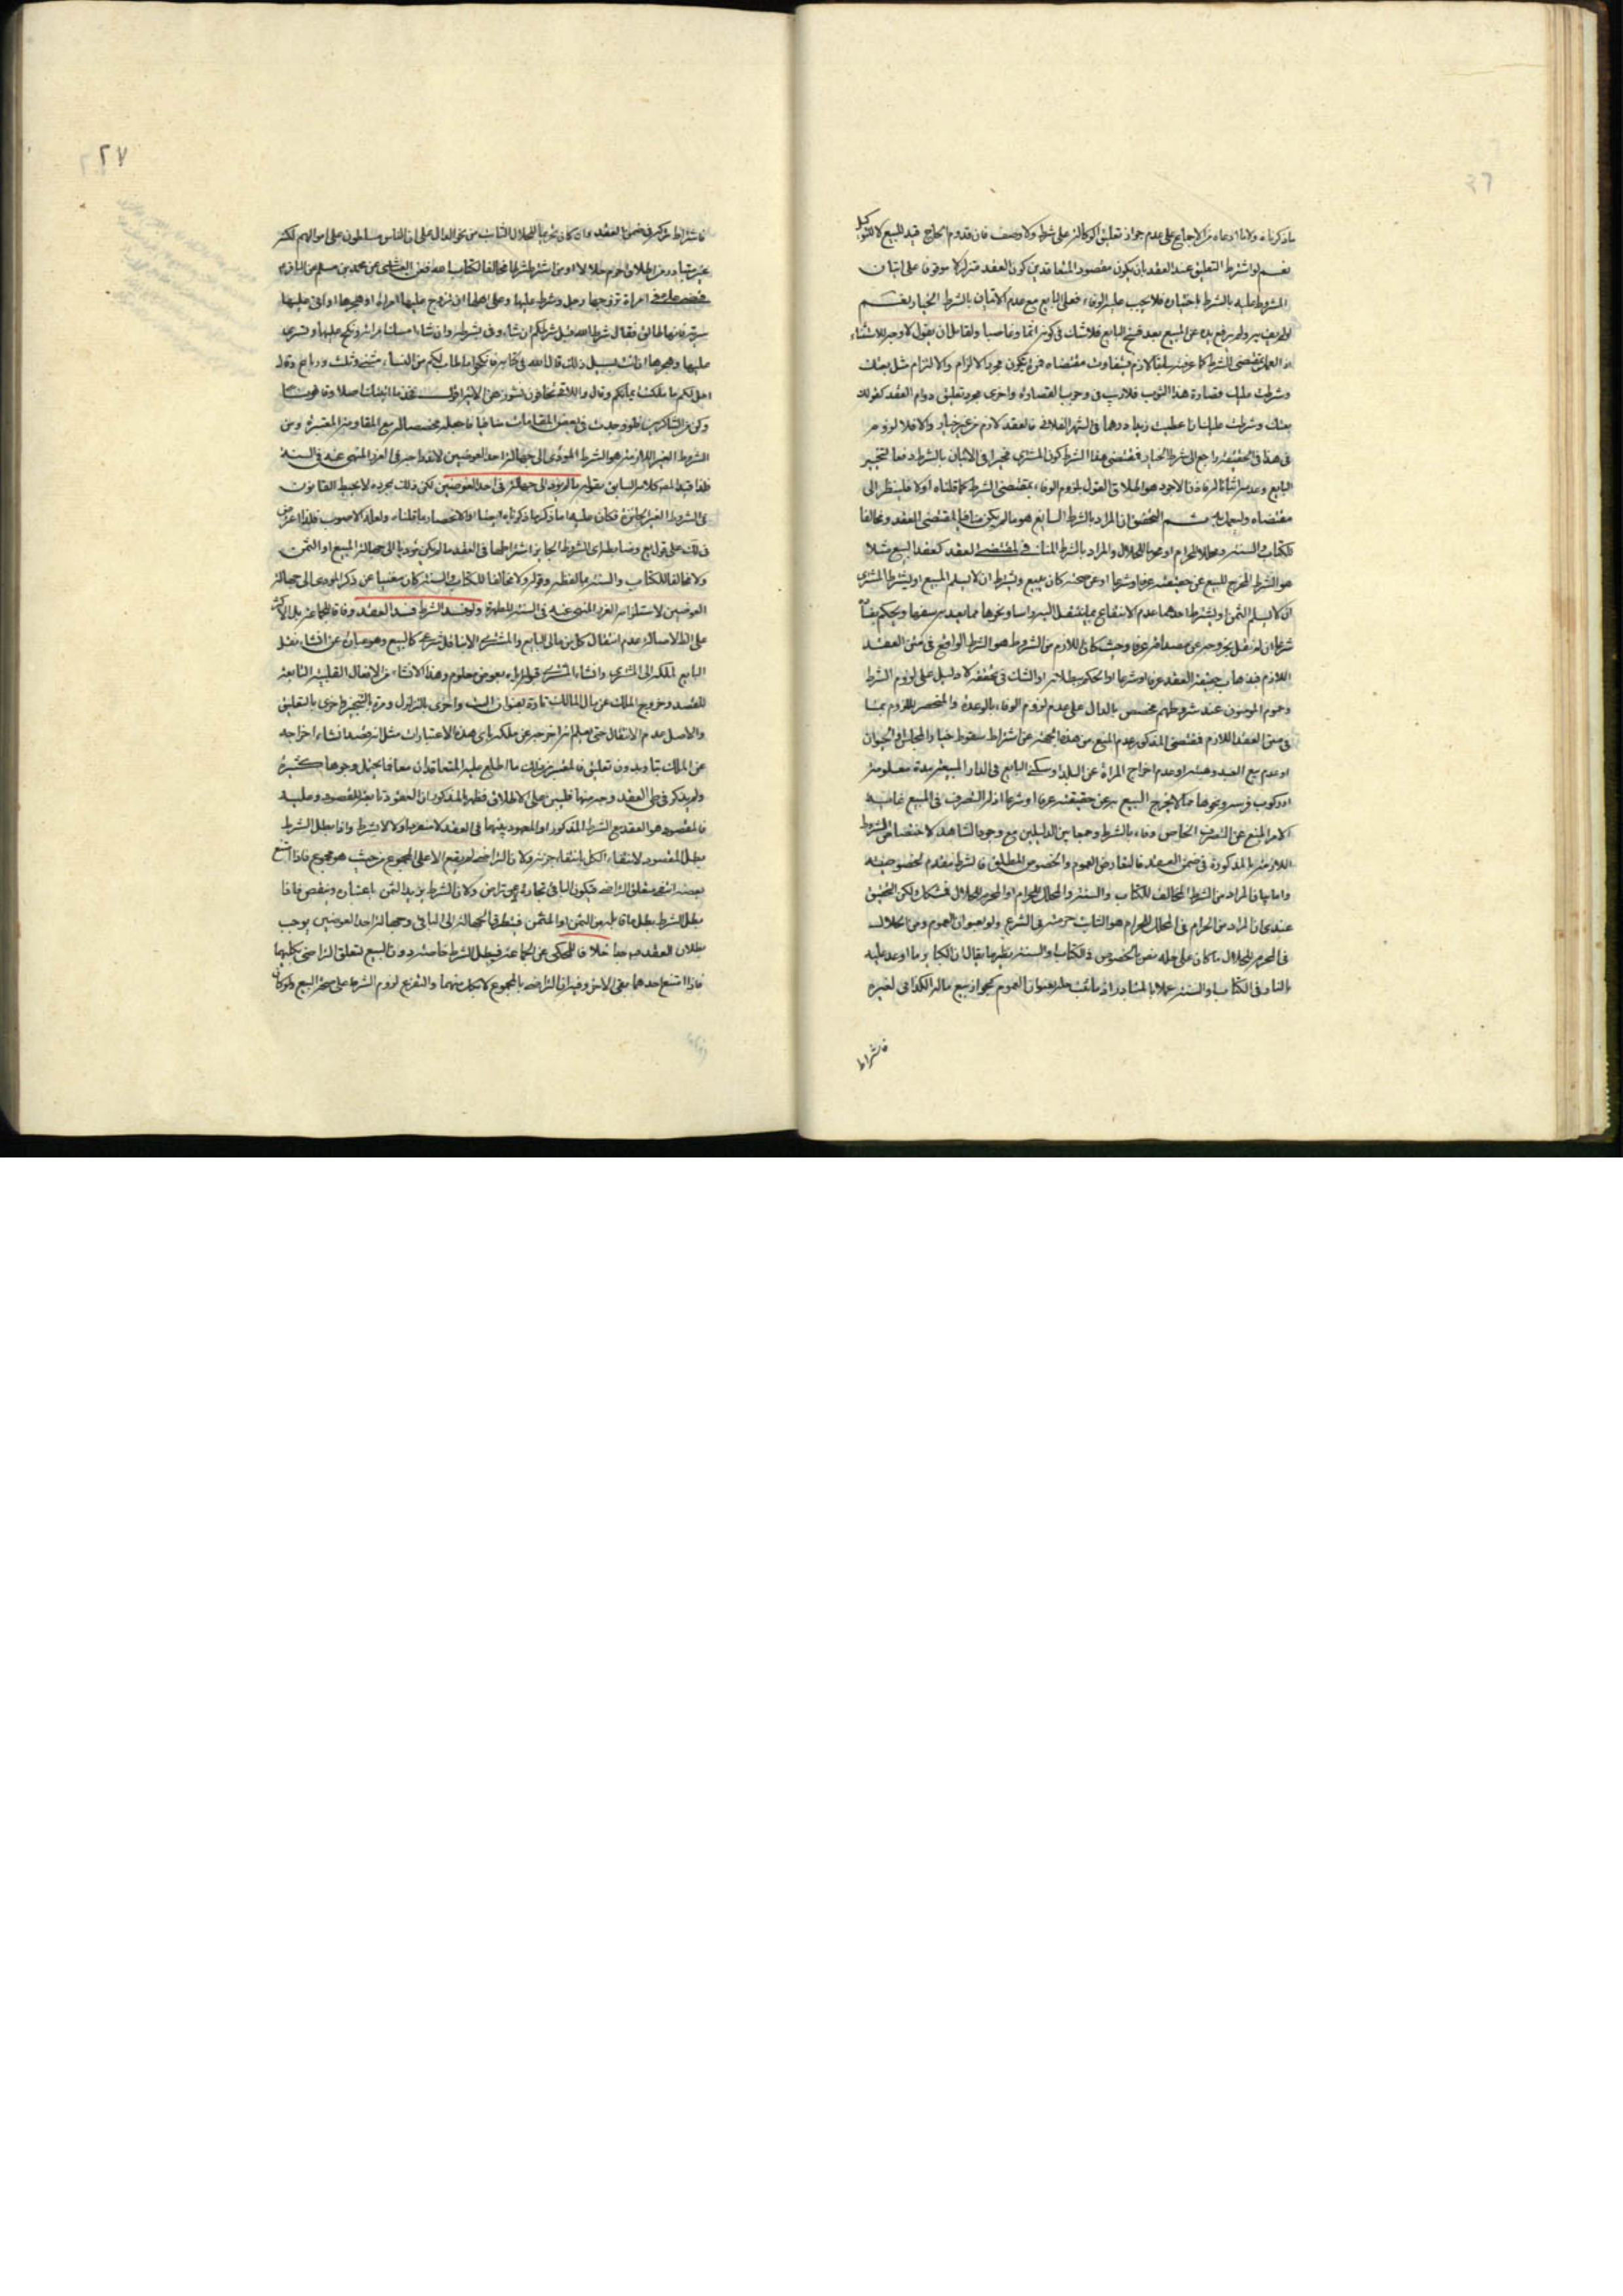 ما ذكرناه ولا ما ادعاه من الاجماع على عدم جواز تعليق الوكالة على شرط ولا وصف فان قدوم الحاج قيد للبيع لا للتوكيل
نعم لو اشترط التعليق عند العقد بان يكون مقصود المتعاقدين كون العقد متزلزلا موقوفا على اتيان
المشروط عليه بالشرط باختياره فلا يجب عليه الوفاء فعلى البايع مع عدم الاتيان بالشرط الخيار نعم
لو لم يرفع يده عن المبيع بعد فسخ البايع فلا شك في كونه اثما وغاصبا ولقائل ان يقول لا وجه للاستثناء
اذ العمل بمقتضى الشرط كما عرفت سابقا لازم فيتفاوت مقتضاه فمرة يكون مجرد الالزام والالتزام مثل بعتك
وشرطت عليك قصارة هذا الثوب فلا ريب في وجوب القصارة واخرى هو تعليق دوام العقد كقولك
بعتك وشرطت عليك ان اعطيت زيدا درهما في الشهر الفلاني فالعقد لازم من غير خيار والا فلا لزوم
في هذا في الحقيقة راجع الى شرط الخيار فمقتضى هذا الشرط كون المشتري مخيرا في الاتيان بالشرط دفعا لتخيير
البايع وعدمه فاذن الاجود هو اطلاق القول بلزوم الوفاء بمقتضى الشرط كما قلناه اولا فلينظر الى
مقتضاه وليعمل به ثم التحقيق ان المراد بالشرط السايغ هو ما لم يكن منافيا لمقتضى العقد ومخالفا
للكتاب والسنة ومحللا للحرام او محرما للحلال والمراد بالشرط المنافي لمقتضى العقد كعقد البيع مثلا
هو الشرط المخرج للبيع عن حقيقته عرفا وشرعا او عن صحته كان يبيع ويشترط ان لا يسلم المبيع او يشترط المشتري
ان لا يسلم الثمن او يشترط احدهما عدم الانتفاع بما ينتقل اليه راسا ونحوها مما يعد سفها ويحكم
شرعا ان لم نقل بخروجه عن مصداقه عرفا وحيث كان اللازم من الشروط هو الشرط الواقع في متن العقد
اللازم فبذهاب حقيقة العقد عرفا وشرعا او الحكم ببطلانه او الشك في تحققه لا دليل على لزوم الشرط
وعموم المومنون عند شروطهم مخصص بالدال على عدم لزوم الوفاء بالوعدة والمنحصر اللزوم بما
في متن العقد اللازم فمقتضى المذكور عدم المنع من هذه الجهة عن اشتراط سقوط خيار المجلس والحيوان
او عدم بيع العبد وهبته او عدم اخراج المراة عن البلد او سكنى البايع في الدار المبيعة مدة معلومة
او ركوب فرسه ونحوها مما لا يخرج البيع عن حقيقته عرفا او شرعا اذ له التصرف في المبيع غاية
الامر المنع عن التصرف الخاص وفاء بالشرط وجمعا بين الدليلين مع وجود الشاهد لاختصاص الشروط
اللازمة بالمذكورة في ضمن العقد فالتعارض العموم والخصوص المطلق فالشرط مقدم لخصوصيته
واما بيان المراد من الشرط المخالف للكتاب والسنة والمحلل للحرام او المحرم للحلال فمشكل ولكن التحقيق
عندي ان المراد من الحرام في المحلل للحرام هو الثابت حرمته في الشرع ولو بعنوان العموم ومن الحلال
في المحرم للحلال ما كان على حله نص بالخصوص في الكتاب والسنة نظير ما يقال ان الكباير ما اوعد عليه
بالنار في الكتاب والسنة عملا بالمتبادر اذ ما ثبت حله بعنوان العموم كجواز بيع ماله الكذايي لغيره
فاشتراط
٢٧
فاشتراط تركه في ضمن العقد وان كان محرما للحلال الثابت من نحو الدال على ان الناس مسلطون على اموالهم لكنه
غير متبادر من اطلاق او حرم حلالا او من اشترط شرطا مخالفا لكتاب الله فعن العياشي عن محمد بن مسلم عن الباقر
قضى علي في امراة تزوجها رجل وشرط عليها وعلى اهلها ان تزوج عليها امراة او هجرها او اتى عليها
سرية فانها طالق فقال شرط الله قبل شرطكم ان شاء وفى بشرطه وان شاء امسك امراته ونكح عليها وتسرى
عليها وهجرها ان اتت بسبيل ذلك قال الله في كتابه فانكحوا ما طاب لكم من النساء مثنى وثلث ورباع وقال
احل لكم ما ملكت ايمانكم وقال واللاتي تخافون نشوزهن الاية فخذ ما اتيتك اصلا وقانونا
وكن من الشاكرين فلو وجدت في بعض المقامات منافيا فاجعله مخصصا له مع المقاومة المعتبرة ومن
الشروط الغير اللازمة هو الشرط المودي الى جهالة احد العوضين لاندراجه في الغرر المنهي عنه في السنة
فلذا قيد المصنف كلامه السابق بقوله ما لم يود الى جهالة في احد العوضين لكن ذلك بمجرده لا يحيط القانون
في الشروط الغير الجايزة فكان عليه اما ذكر ما ذكرناه ايضا او الاقتصار ما قلناه ولعله الاصوب فلذا اعرض
ذلك على قول بع وضابطه ان الشروط الجايز اشتراطها في العقد ما لم يكن موديا الى جهالة المبيع او الثمن
ولا مخالفا للكتاب والسنة ما لفظه وقوله ولا مخالفا للكتاب والسنة كان مغنيا عن ذكر المودي الى جهالة
العوضين لاستلزامه الغرر المنهي عنه في السنة المطهرة ولو فسد الشرط فسد العقد وفاقا للجماعة بل الاكثر
على الاصالة عدم انتقال كل من مالي البايع والمشتري الا بناقل شرعي كالبيع وهو عبارة عن انشاء نقل
البايع الملك الى المشتري وانشاء المشتري قبوله بعوض معلوم وهذا الانشاء من الافعال القلبية التابعة
للقصد وخروج الملك عن مال المالك تارة بعنوان البت واخرى بالتزلزل ومرة بالتنجيز واخرى بالتعليق
والاصل عدم الانتقال حتى يعلم انه اخرجه عن ملكه باي هذه الاعتبارات مثل انه قصد انشاء اخراجه
عن الملك بتا وبدون تعليق
ولم يذكر في طي العقد وجه منها فليس على الاطلاق فظهر المذكور ان العقود تابعة للقصود وعليه
فالمقصود هو العقد مع الشرط المذكور او المعهود بينهما في العقد لا منفردا ولا لا بشرط واذا بطل الشرط
بطل المقصود لانتفاء الكل بانتفاء جزئه ولان التراضي لم يقع الا على المجموع من حيث هو مجموع فاذا امتنع
بعضه انتفى متعلق التراضي فيكون الباقي تجارة عن تراض ولان الشرط يزيد الثمن باعتباره وينقص فاذا
بطل الشرط بطل ما قابله من الثمن او المثمن فيتطرق الجهالة الى الباقي وجهالة احد العوضين يوجب
بطلان العقد خلافا للمحكي عن الجماعة فيبطل الشرط خاصة دون البيع لتعلق التراضي بكليهما
فاذا امتنع احدهما بقي الاخر وفيه ان التراضي بالمجموع لا بكل منهما والتفريع لزوم الشرط على صحة البيع ولو كان